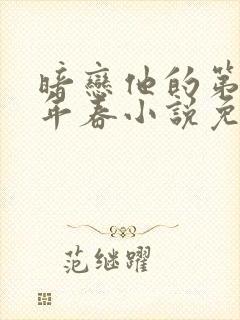 暗戀他的第
年春小說免
范继躍